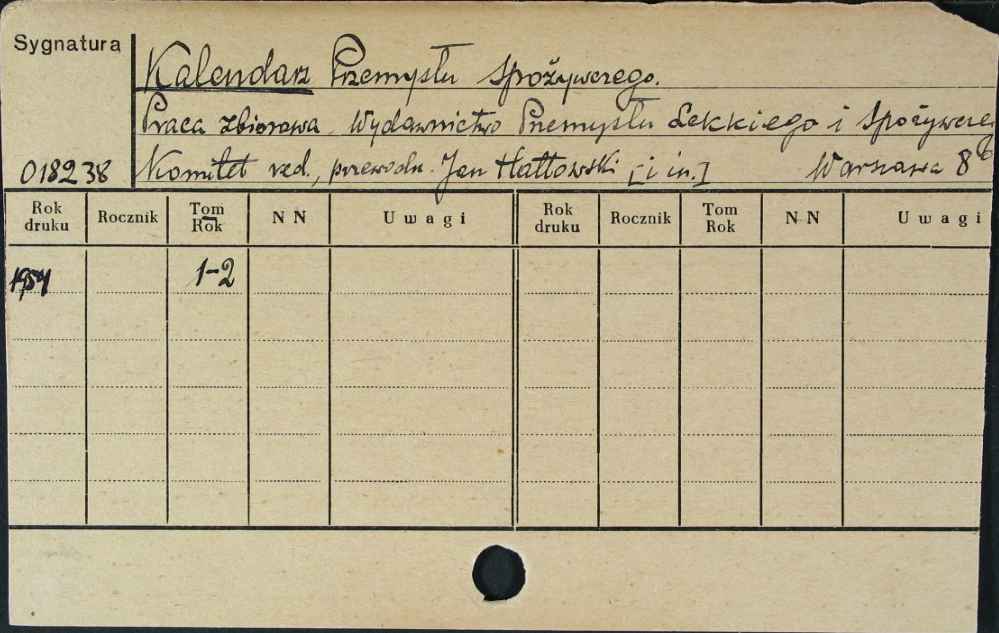 Sygnatura
Kalendarz Przemysłu Spożywczego.
Praca zbiorowa. Wydawnictwo Przemysłu Lekkiego i Spożywczeg
018238 Komitet red., przewodn. Jan Hattowski [i in.] Warszawa 8°
Rok druku Rocznik Tom Rok NN Uwagi Rok druku Rocznik Tom Rok NN Uwagi
1954 1-2